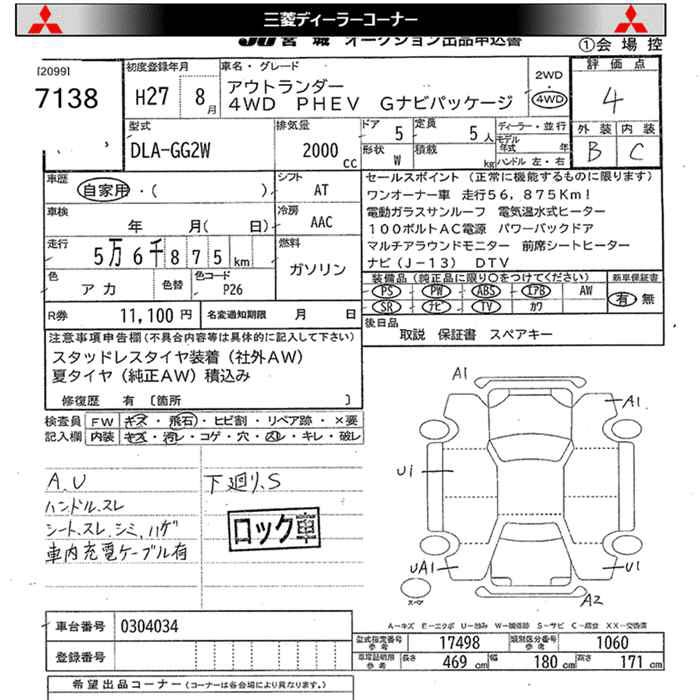 三菱ディーラーコーナー
JU 宮城 オークション出品申込書
①会場控
[2099]
7138
初度登録年月
H27 8月
車名・グレード
アウトランダー
4WD PHEV Gナビパッケージ
2WD
・
4WD
評価点
4
外装 内装
B C
型式
DLA-GG2W
排気量
2000 cc
ドア 5
形状 W
定員 5人
積載 kg
ディーラー・並行
モデル年式 年
ハンドル 左・右
車歴
自家用・( )
シフト
AT
車検
年 月( 日)
冷房
AAC
走行
5万6千875km
燃料
ガソリン
色
アカ
色替
色コード
P26
R券
11,100円
名変通知期限 月 日
セールスポイント(正常に機能するものに限ります)
ワンオーナー車 走行56,875Km!
電動ガラスサンルーフ 電気温水式ヒーター
100ボルトAC電源 パワーバックドア
マルチアラウンドモニター 前席シートヒーター
ナビ(J-13) DTV
装備品(純正品に限り○をつけてください)
新車保証書
PS PW ABS エアB AW
SR ナビ TV カワ
有 無
後日品
取説 保証書 スペアキー
注意事項申告欄(不具合内容等は具体的に記入して下さい)
スタッドレスタイヤ装着(社外AW)
夏タイヤ(純正AW)積込み
修復歴 有〔箇所 〕
検査員記入欄
FW キズ・飛石・ヒビ割・リペア跡・×要
内装 キズ・汚レ・コゲ・穴・スレ・キレ・破レ
A.U
ハンドル.スレ
シート.スレ.シミ.ハゲ
車内充電ケーブル有
下廻り.S
ロック車
A1
A1
U1
UA1
U1
A2
スペア
A-キズ E-エクボ U-凹み W-補修跡 S-サビ C-腐食 XX-交換済
車台番号
0304034
登録番号
型式指定番号 参考
17498
類別区分番号 参考
1060
車庫証明用 参考
長さ 469cm 幅 180cm 高さ 171cm
希望出品コーナー(コーナーは各会場により異なります。)